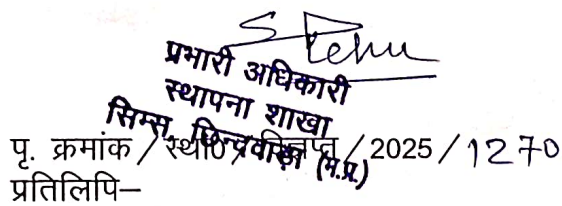 प्रभारी अधिकारी
स्थापना शाखा
सिम्स, छिन्दवाड़ा (म.प्र.)
पृ. क्रमांक / स्था0 / / 2025 / 1270
प्रतिलिपि–